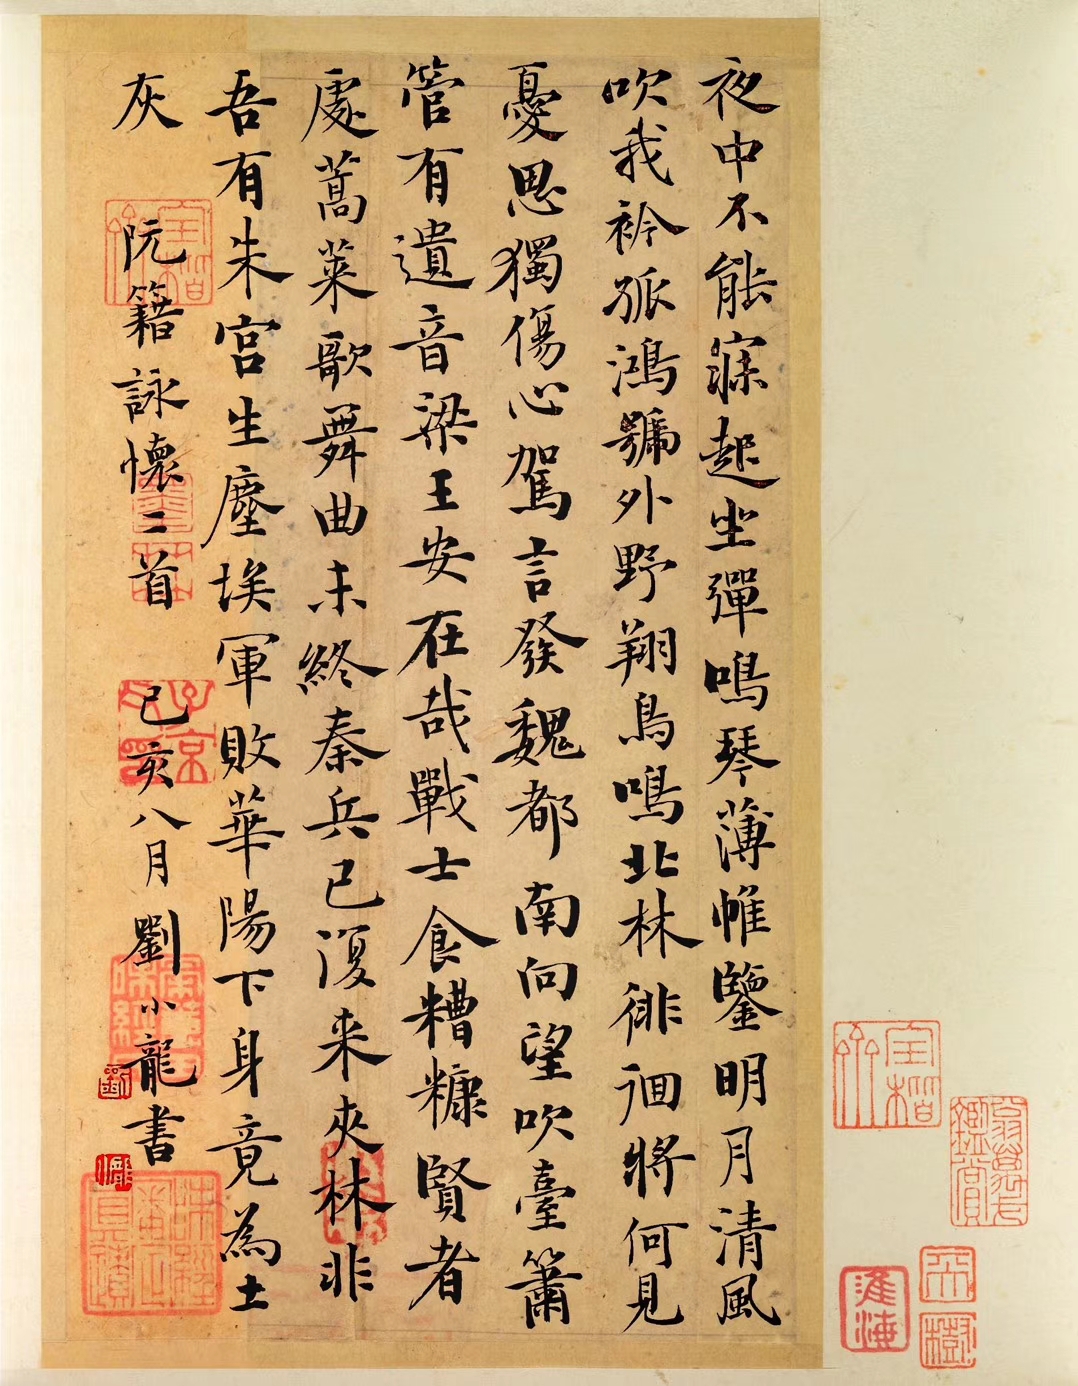 夜中不能寐起坐彈鳴琴薄帷鑒明月清風
吹我衿孤鴻號外野翔鳥鳴北林徘徊將何見
憂思獨傷心駕言發魏都南向望吹臺簫
管有遺音梁王安在哉戰士食糟糠賢者
處蒿萊歌舞曲未終秦兵已復来夾林非
吾有朱宮生塵埃軍敗華陽下身竟為土
灰 阮籍詠懷二首 己亥八月劉小龍書